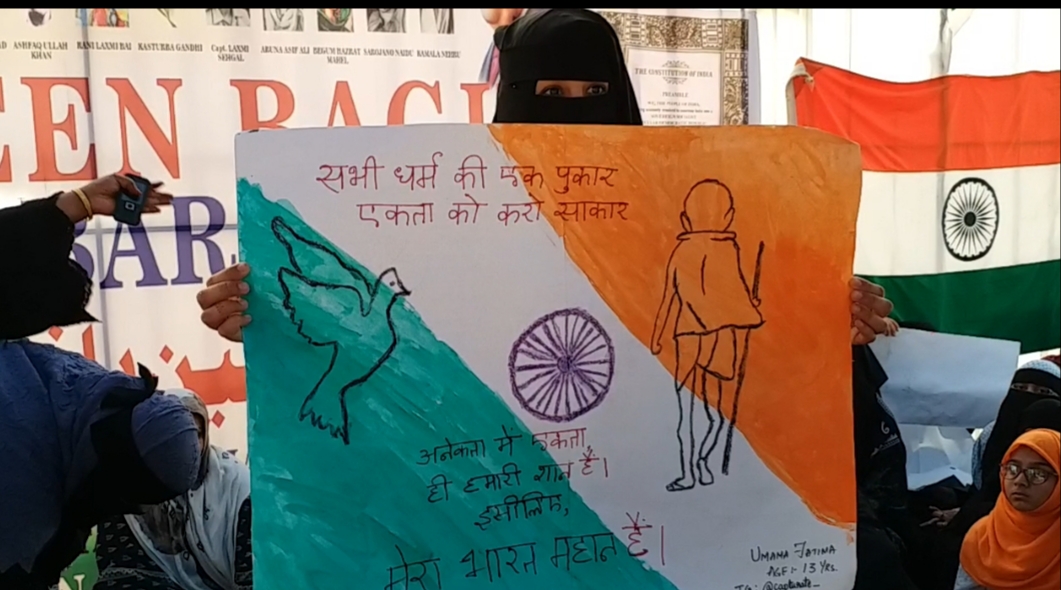 ASHFAQ ULLAH KHAN
RANI LAXMI BAI
KASTURBA GANDHI
Capt. LAXMI SEHGAL
ARUNA ASIF ALI
BEGUM HAZRAT MAHEL
SAROJANO NAIDU
KAMALA NEHRU
EEN BAG
BAR
THE CONSTITUTION OF INDIA
PREAMBLE
सभी धर्म की एक पुकार
एकता को करो साकार
अनेकता में एकता,
ही हमारी शान है।
इसीलिए,
मेरा भारत महान है।
UMAMA FATIMA
AGE:- 13 Yrs.